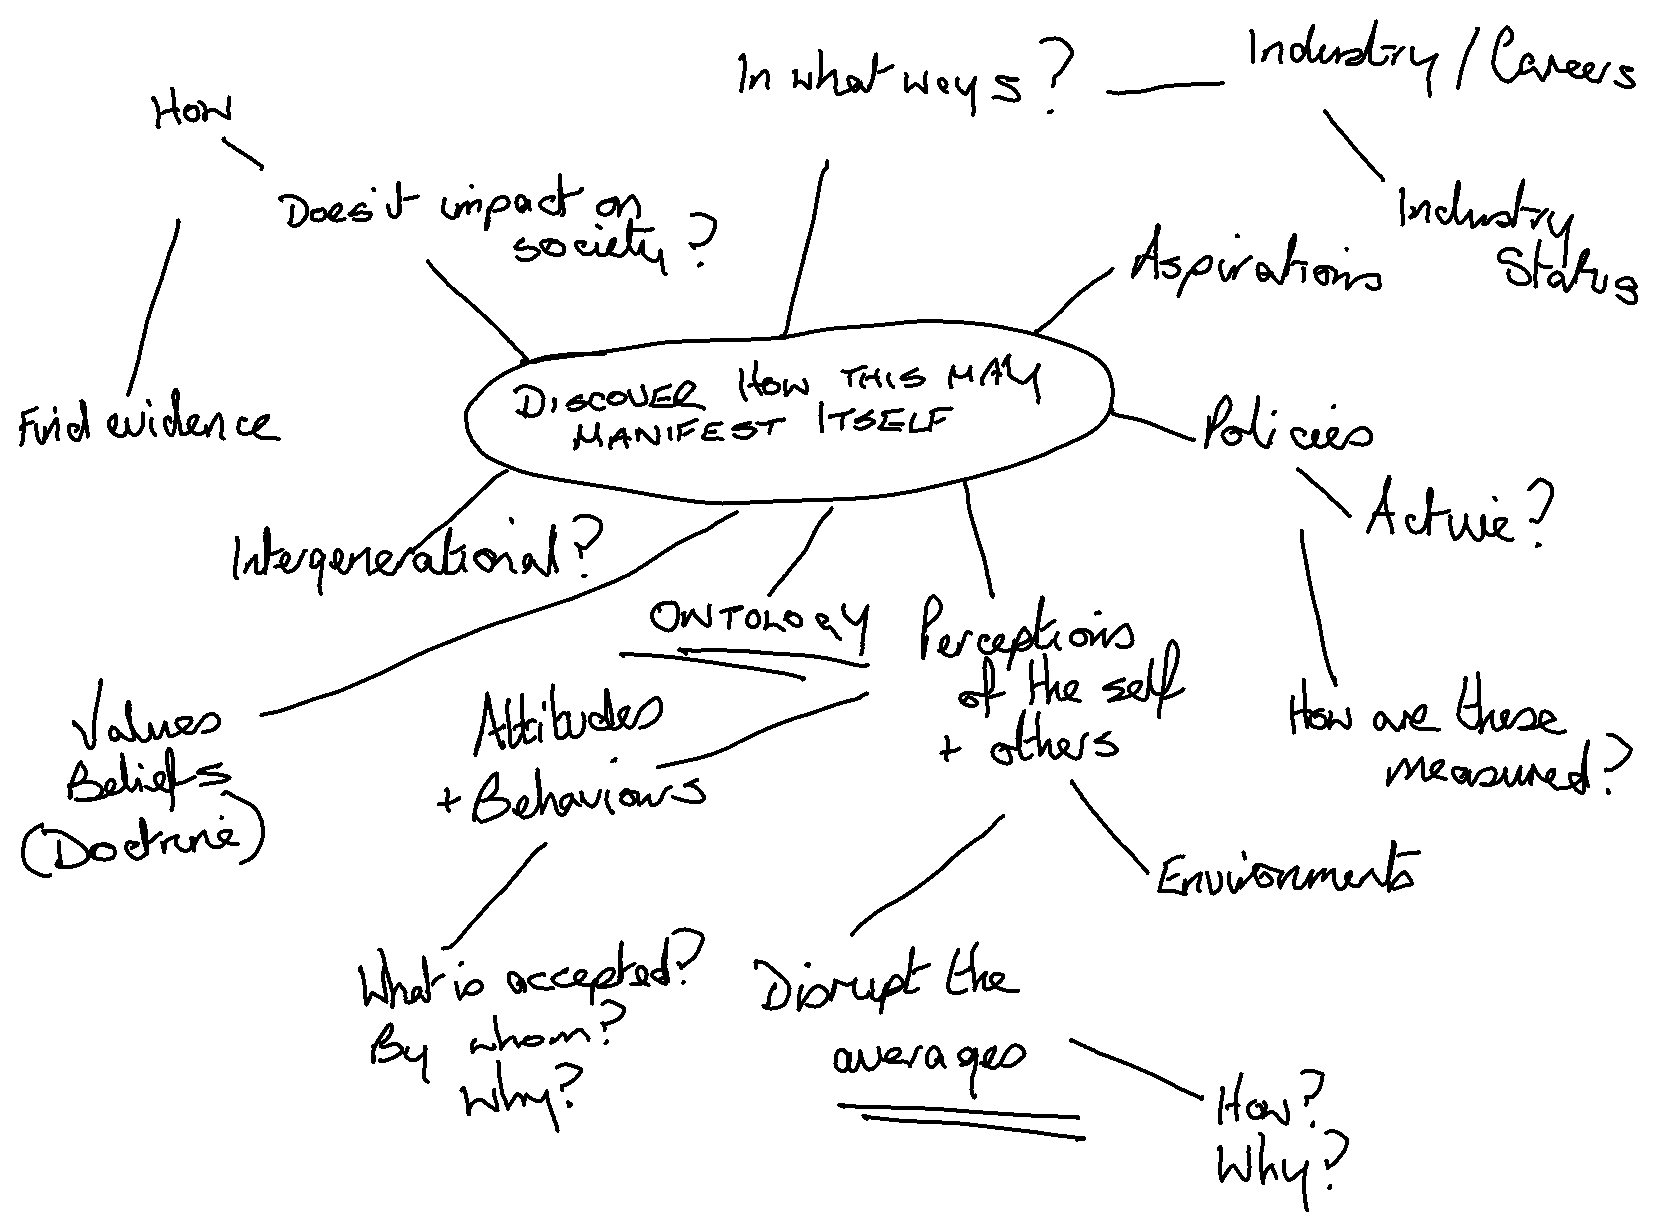 In what ways?
Industry / Careers
How
Industry
Status
Does it impact on
society?
Aspirations
DISCOVER HOW THIS MAY
MANIFEST ITSELF
Find evidence
Policies
Active?
Intergenerational?
ONTOLOGY
Perceptions
of the self
+ others
How are these
measured?
Values
Beliefs
(Doctrine)
Attitudes
+ Behaviours
Environments
What is accepted?
By whom?
Why?
Disrupt the
averages
How?
Why?